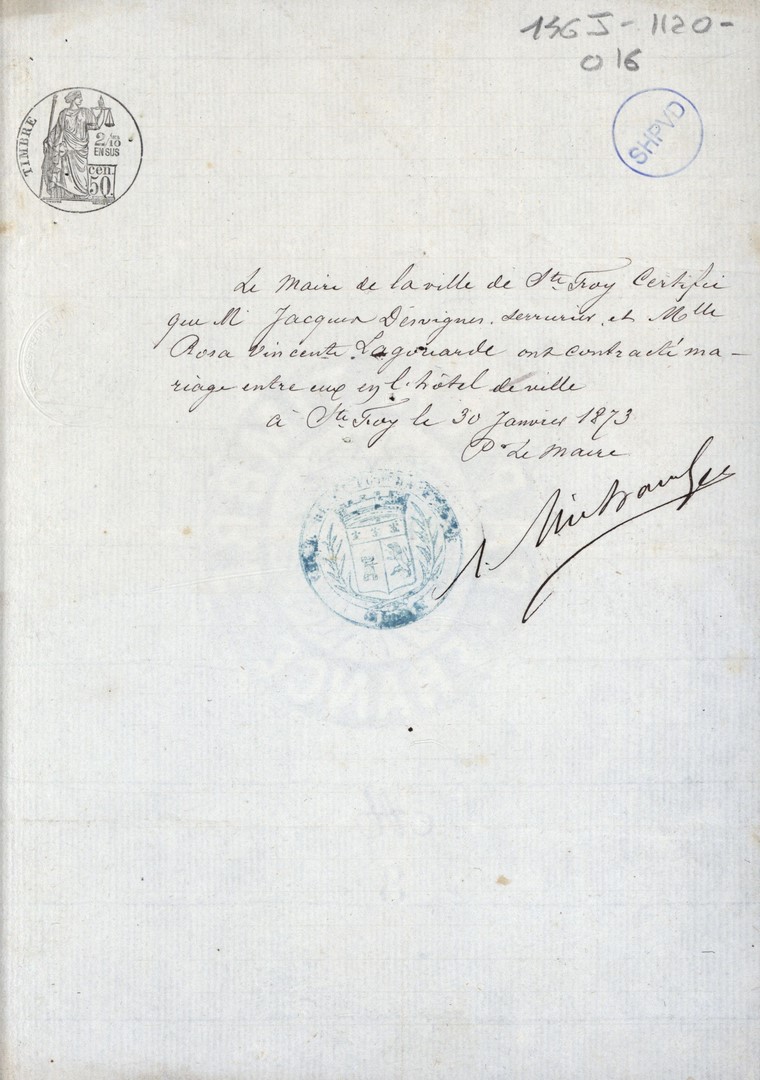 136 J - 1120 -
016
TIMBRE
2/10
EN SUS
cen.
50.
SHPVD
Le Maire de la ville de Ste Foy Certifie
que Mr Jacques Désvignes, serrurier, et Mlle
Rosa Vincente Lagouarde ont contracté ma-
riage entre eux en l'hôtel de ville
à Ste Foy le 30 Janvier 1873
Pr Le Maire
FRANC